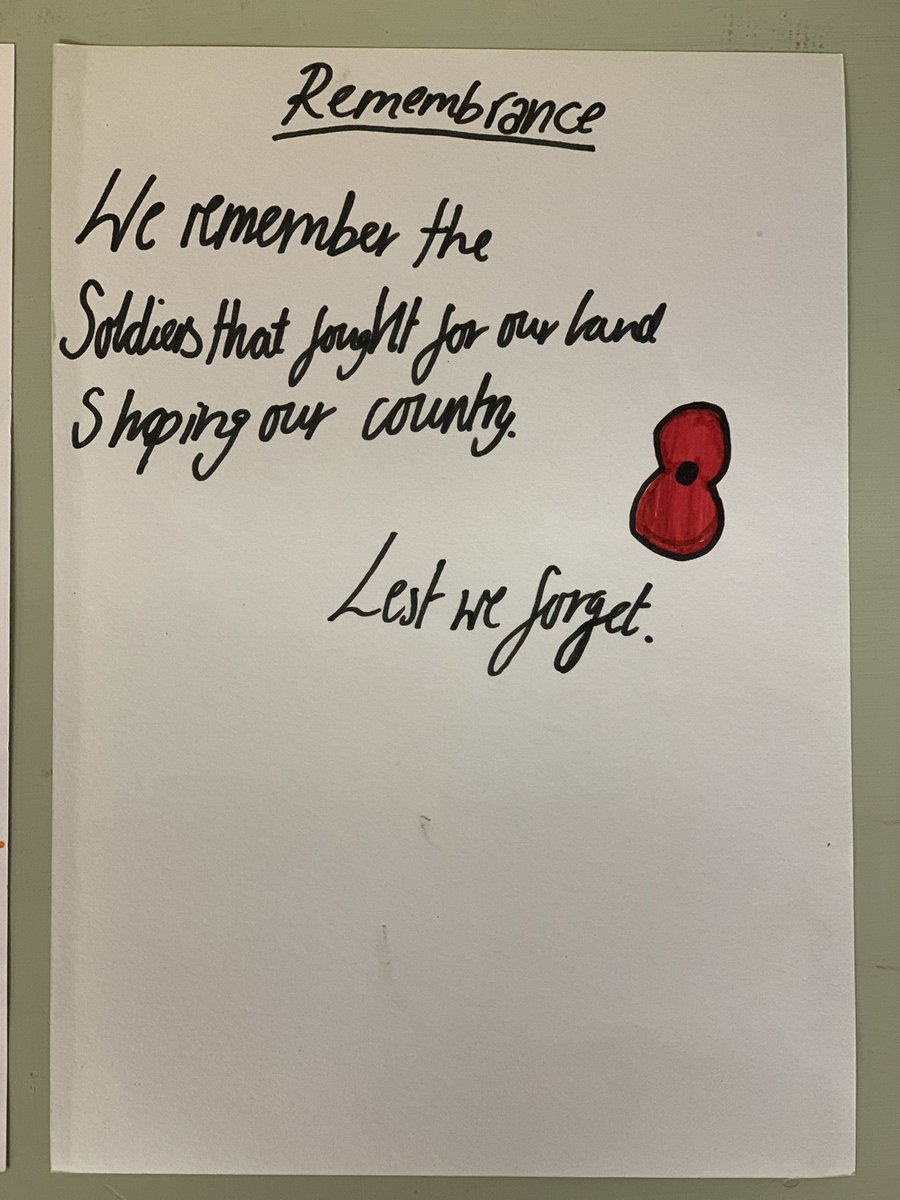 Remembrance
We remember the
Soldiers that fought for our land
Shaping our country.
Lest we forget.